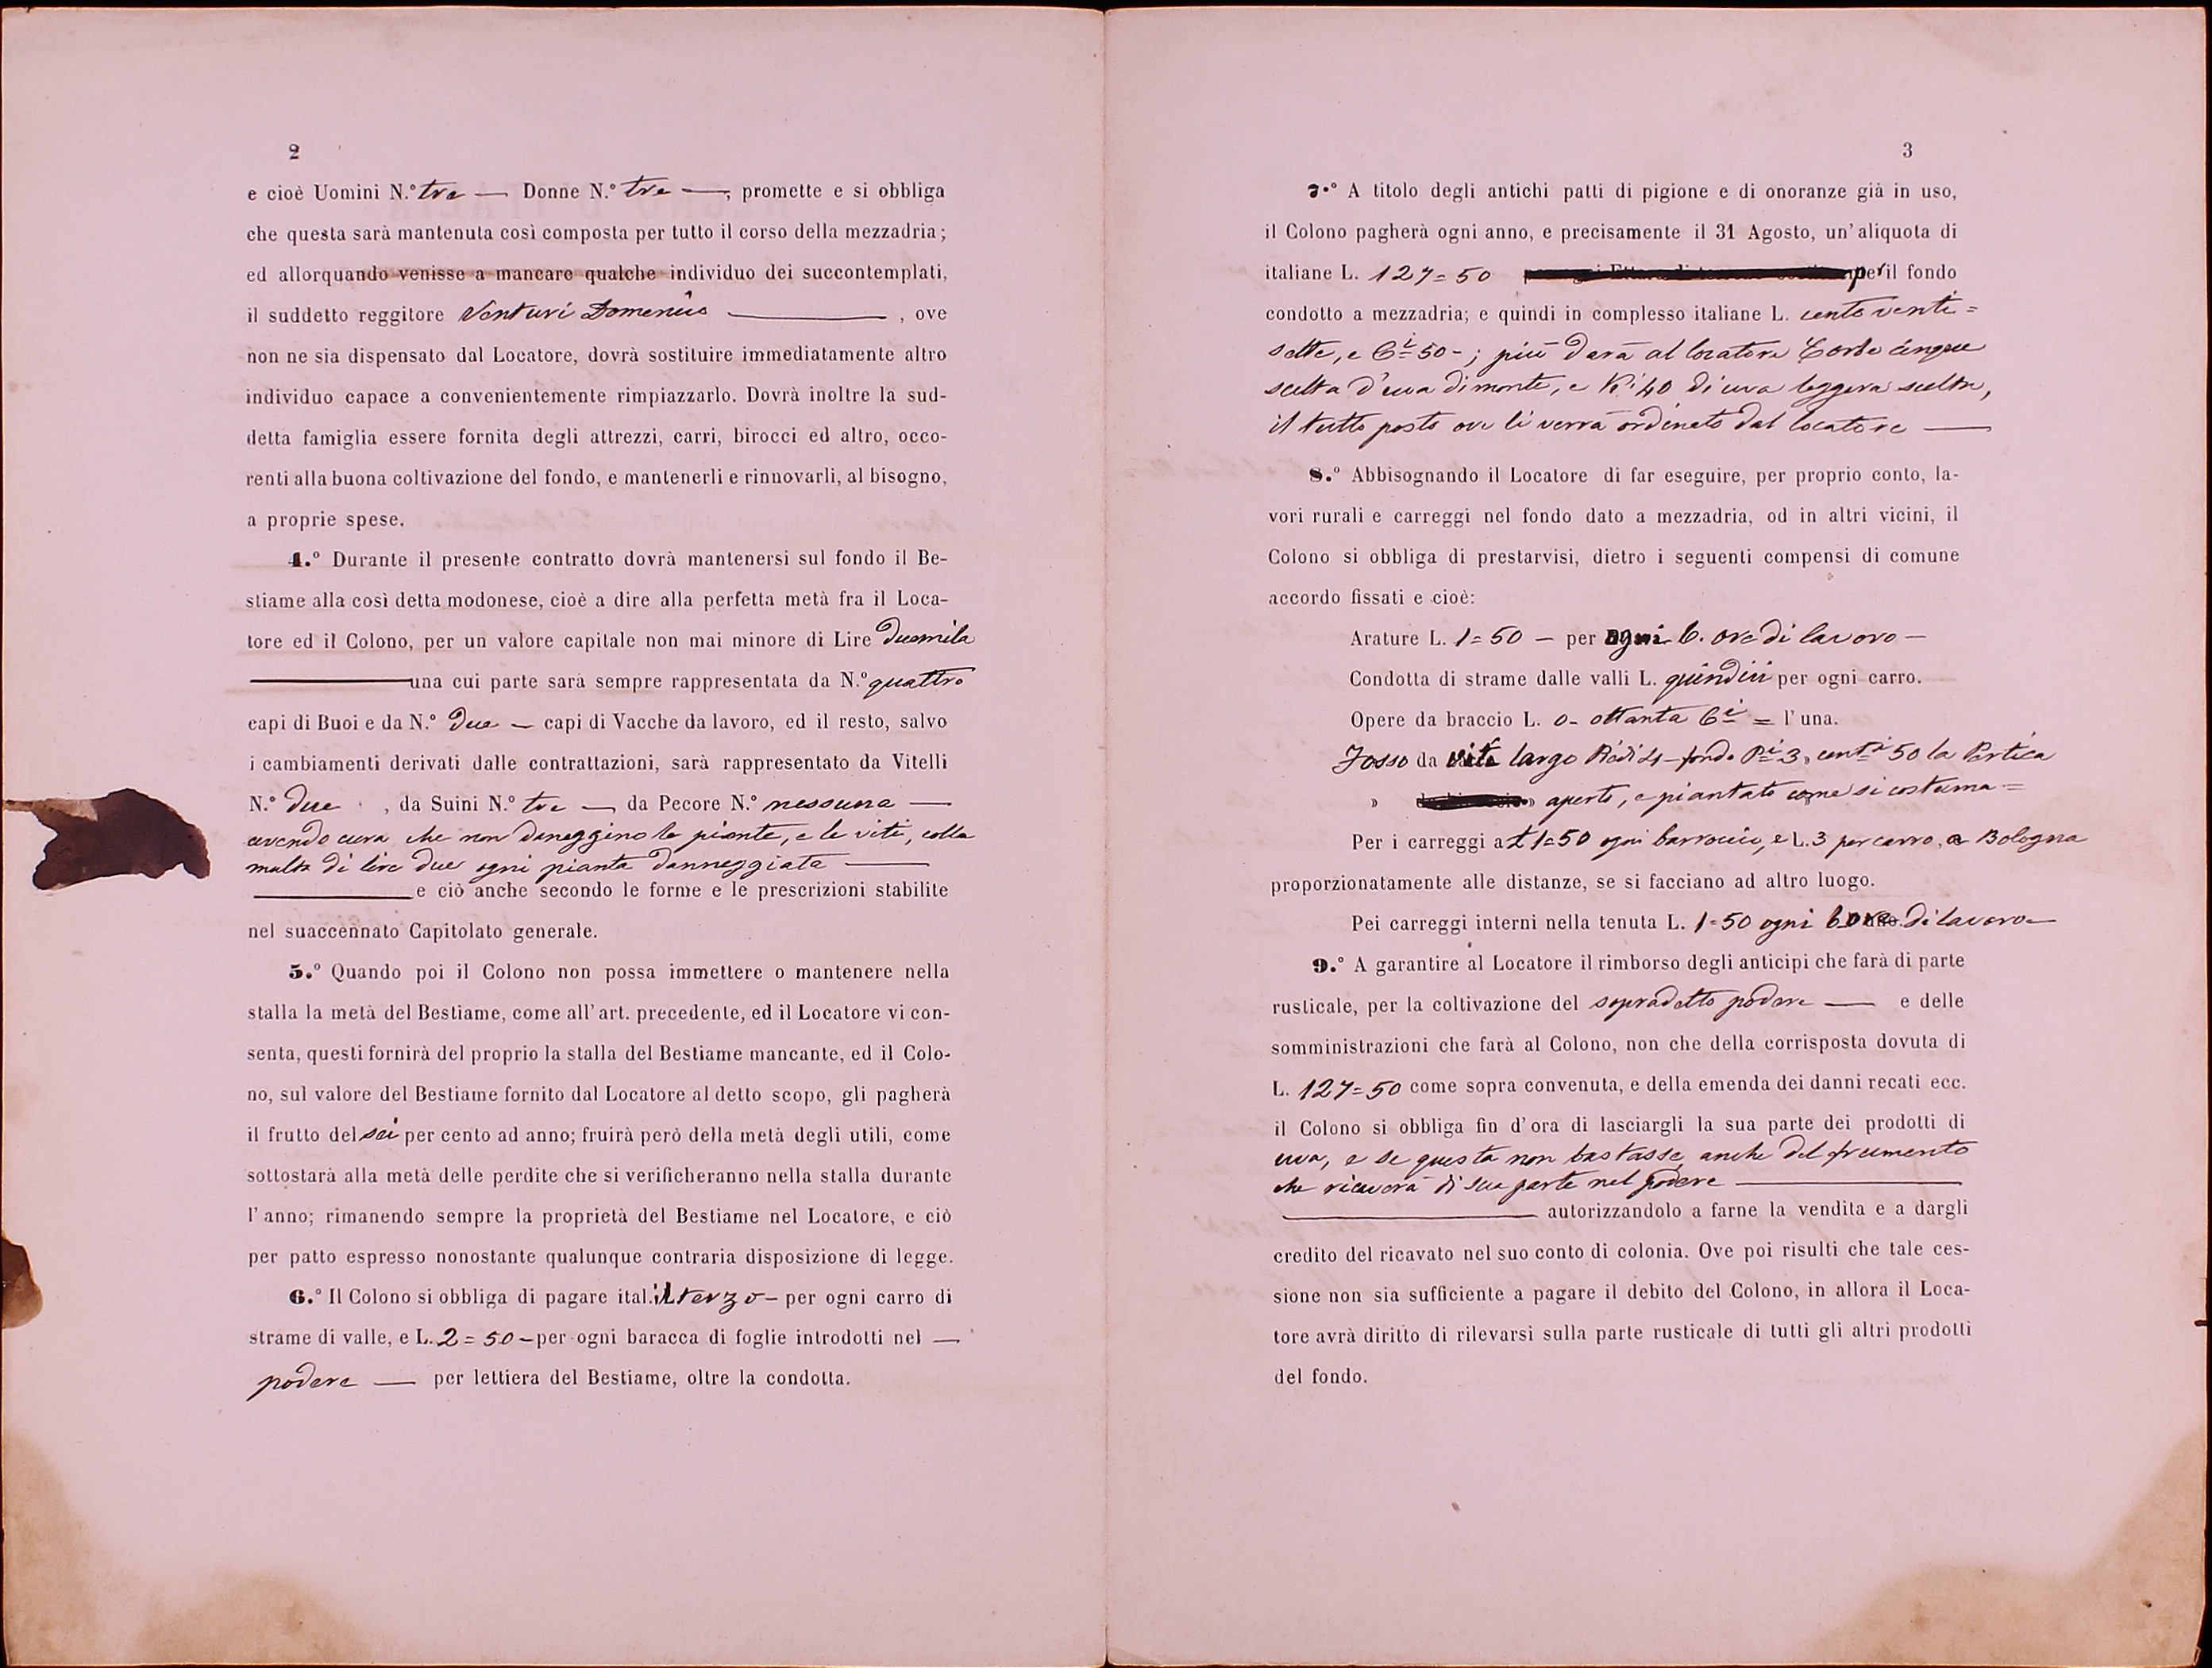 2
e cioè Uomini N.º tre — Donne N.º tre —, promette e si obbliga
che questa sarà mantenuta così composta per tutto il corso della mezzadria;
ed allorquando venisse a mancare qualche individuo dei succontemplati,
il suddetto reggitore Venturi Domenico ———, ove
non ne sia dispensato dal Locatore, dovrà sostituire immediatamente altro
individuo capace a convenientemente rimpiazzarlo. Dovrà inoltre la sud-
detta famiglia essere fornita degli attrezzi, carri, birocci ed altro, occo-
renti alla buona coltivazione del fondo, e mantenerli e rinnovarli, al bisogno,
a proprie spese.
4.º Durante il presente contratto dovrà mantenersi sul fondo il Be-
stiame alla così detta modonese, cioè a dire alla perfetta metà fra il Loca-
tore ed il Colono, per un valore capitale non mai minore di Lire duemila
——— una cui parte sarà sempre rappresentata da N.º quattro
capi di Buoi e da N.º due — capi di Vacche da lavoro, ed il resto, salvo
i cambiamenti derivati dalle contrattazioni, sarà rappresentato da Vitelli
N.º due , da Suini N.º tre — da Pecore N.º nessuna —
avendo cura che non daneggino le piante, e le viti, colla
multa di lire due ogni pianta danneggiata ———
——— e ciò anche secondo le forme e le prescrizioni stabilite
nel suaccennato Capitolato generale.
5.º Quando poi il Colono non possa immettere o mantenere nella
stalla la metà del Bestiame, come all'art. precedente, ed il Locatore vi con-
senta, questi fornirà del proprio la stalla del Bestiame mancante, ed il Colo-
no, sul valore del Bestiame fornito dal Locatore al detto scopo, gli pagherà
il frutto del sei per cento ad anno; fruirà però della metà degli utili, come
sottostarà alla metà delle perdite che si verificheranno nella stalla durante
l'anno; rimanendo sempre la proprietà del Bestiame nel Locatore, e ciò
per patto espresso nonostante qualunque contraria disposizione di legge.
6.º Il Colono si obbliga di pagare ital. il terzo — per ogni carro di
strame di valle, e L. 2=50 — per ogni baracca di foglie introdotti nel —
podere — per lettiera del Bestiame, oltre la condotta.
3
7.º A titolo degli antichi patti di pigione e di onoranze già in uso,
il Colono pagherà ogni anno, e precisamente il 31 Agosto, un'aliquota di
italiane L. 127=50 per il fondo
condotto a mezzadria; e quindi in complesso italiane L. cento venti=
sette, e Ci 50-; più darà al locatore Corbe cinque
scelta d'uva di monte, e K.i 40 di uva leggera scelta,
il tutto posto ove li verrà ordinato dal locatore —
8.º Abbisognando il Locatore di far eseguire, per proprio conto, la-
vori rurali e carreggi nel fondo dato a mezzadria, od in altri vicini, il
Colono si obbliga di prestarvisi, dietro i seguenti compensi di comune
accordo fissati e cioè:
Arature L. 1=50 — per ogni 6. ore di lavoro —
Condotta di strame dalle valli L. quindici per ogni carro.
Opere da braccio L. 0- ottanta Ci = l'una.
Fosso da vite largo Piedi 4 — fondo Pi 3, centi 50 la Pertica
» aperto, e piantato come si costuma =
Per i carreggi a £ 1=50 ogni barroccio, e L. 3 per carro, a Bologna
proporzionatamente alle distanze, se si facciano ad altro luogo.
Pei carreggi interni nella tenuta L. 1=50 ogni 6 ore di lavoro —
9.º A garantire al Locatore il rimborso degli anticipi che farà di parte
rusticale, per la coltivazione del sopradetto podere — e delle
somministrazioni che farà al Colono, non che della corrisposta dovuta di
L. 127=50 come sopra convenuta, e della emenda dei danni recati ecc.
il Colono si obbliga fin d'ora di lasciargli la sua parte dei prodotti di
uva, e se questa non bastasse, anche del frumento
che ricaverà di sua parte nel podere ———
——— autorizzandolo a farne la vendita e a dargli
credito del ricavato nel suo conto di colonia. Ove poi risulti che tale ces-
sione non sia sufficiente a pagare il debito del Colono, in allora il Loca-
tore avrà diritto di rilevarsi sulla parte rusticale di tutti gli altri prodotti
del fondo.